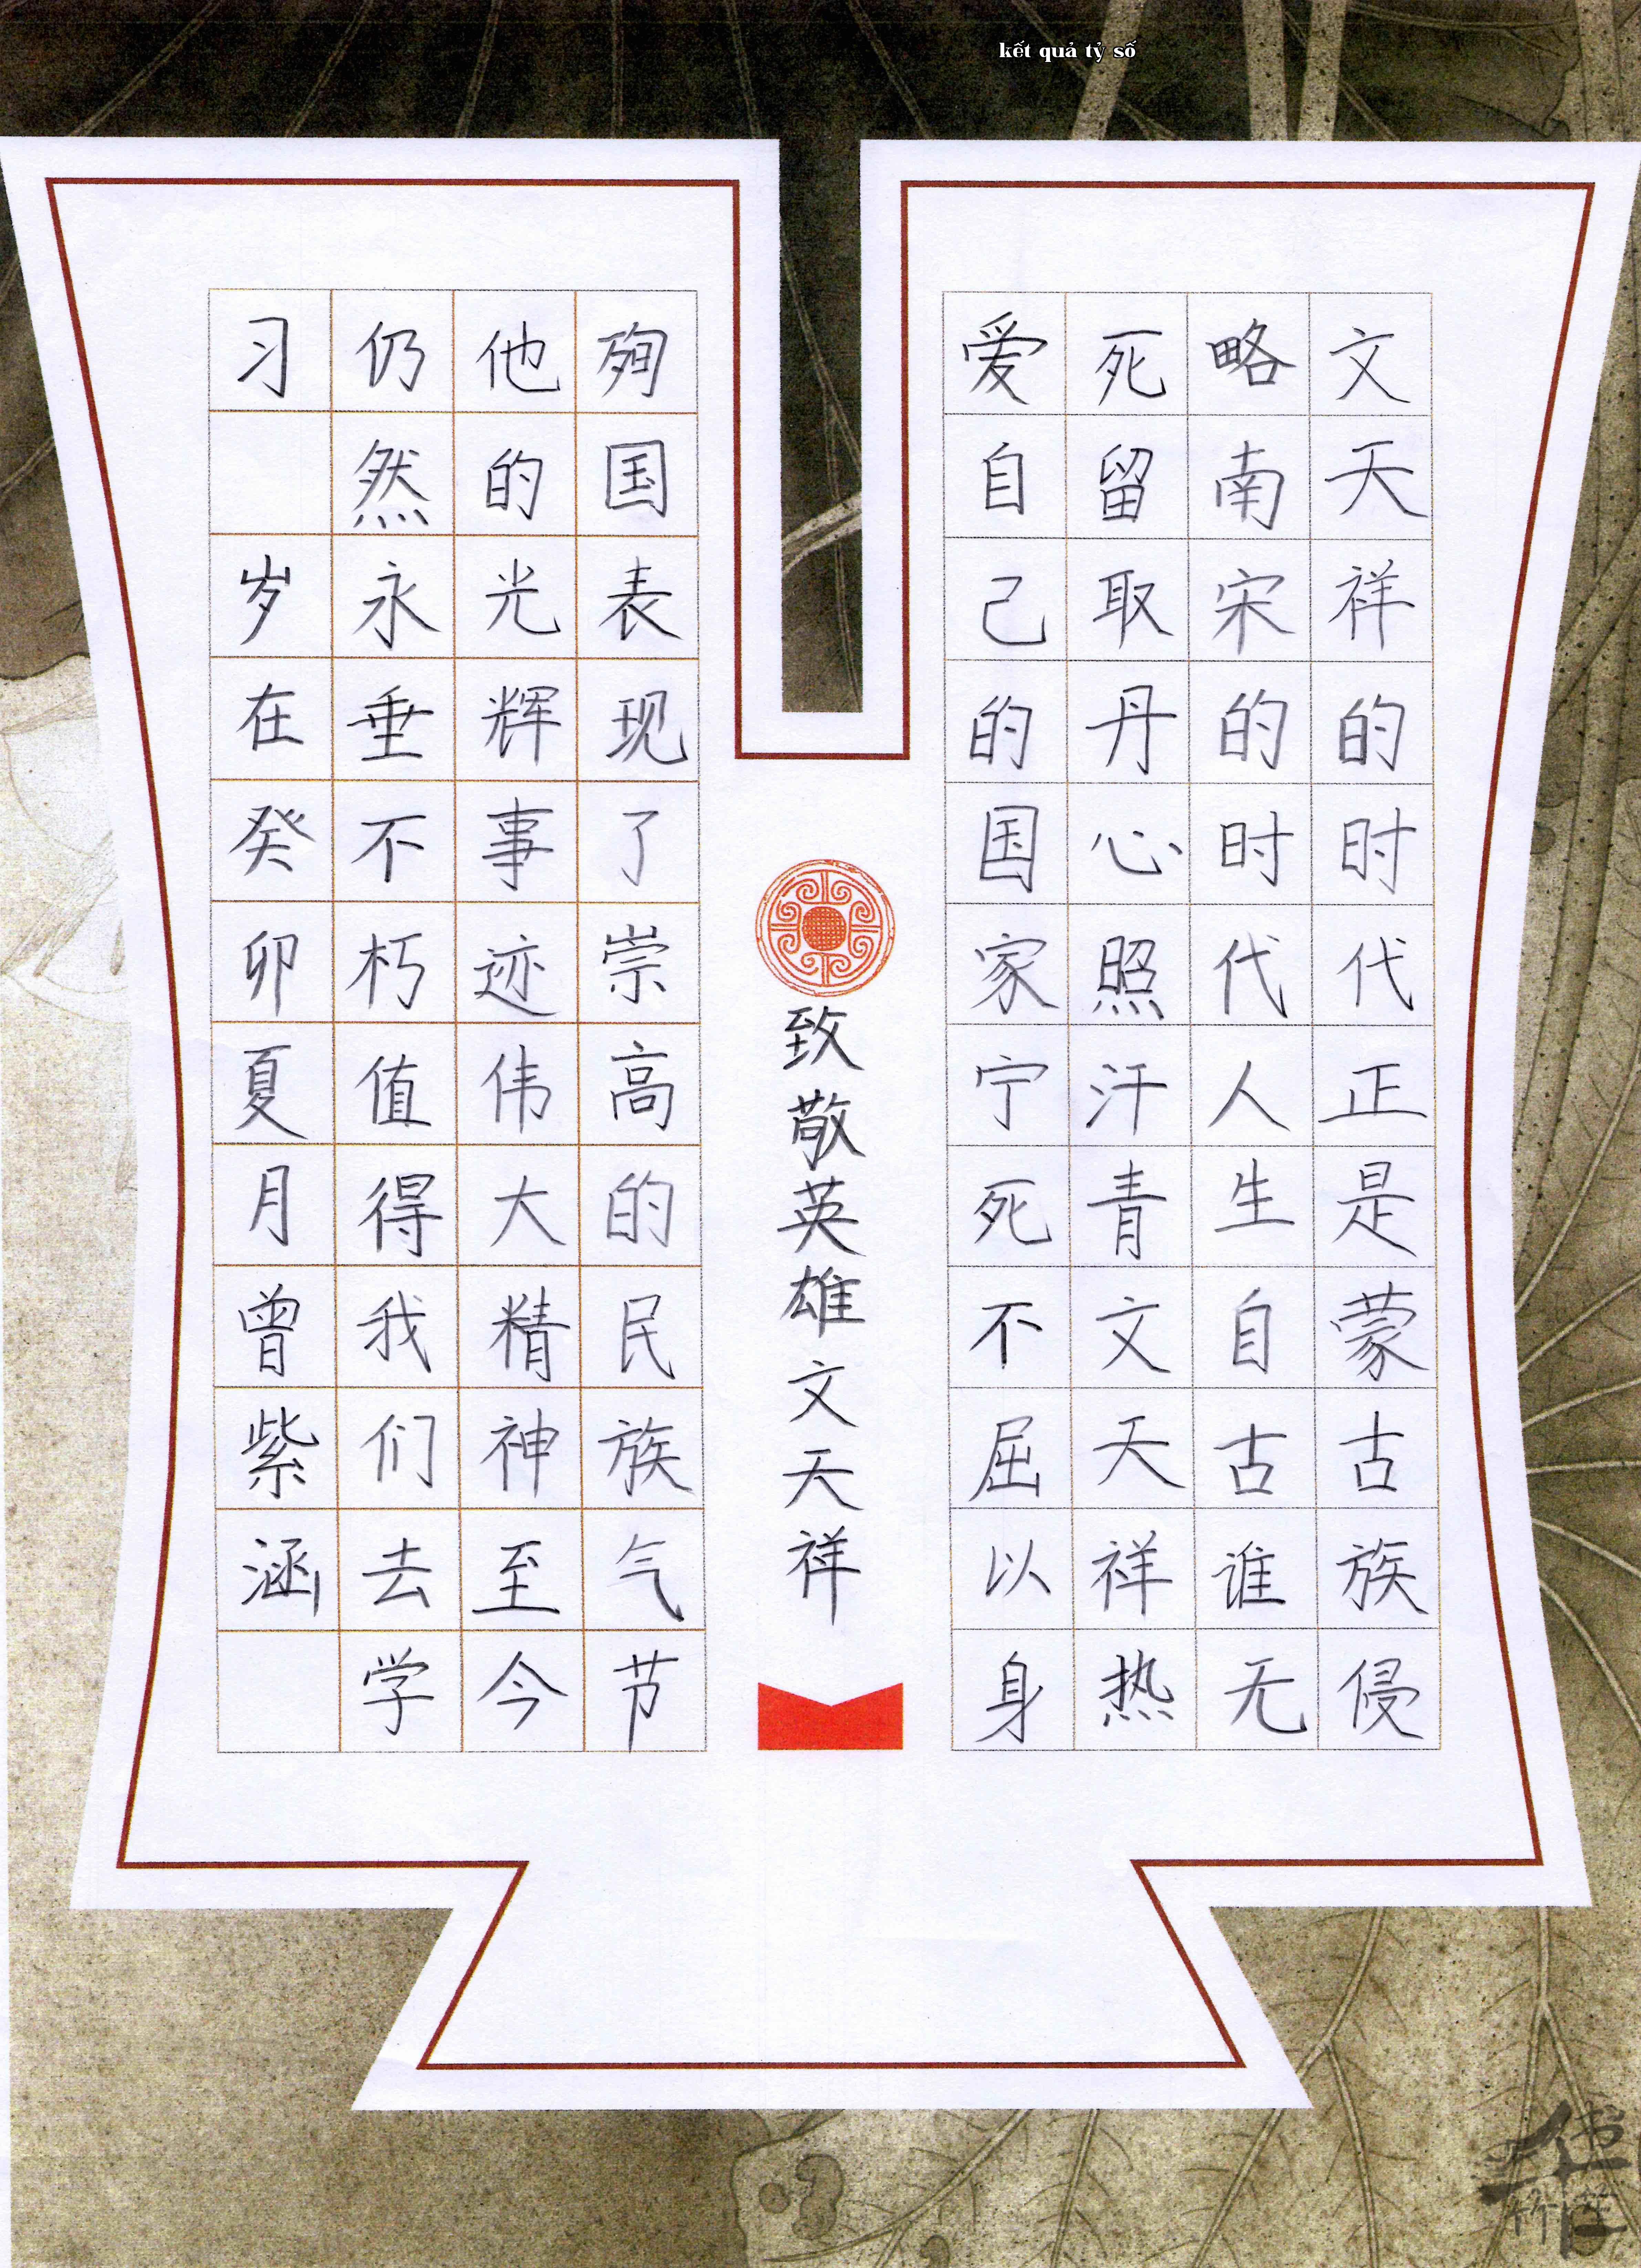 kết quả tỷ số
文天祥的时代正是蒙古族侵
略南宋的时代人生自古谁无
死留取丹心照汗青文天祥热
爱自己的国家宁死不屈以身
致敬英雄文天祥
殉国表现了崇高的民族气节
他的光辉事迹伟大精神至今
仍然永垂不朽值得我们去学
习 岁在癸卯夏月曾紫涵